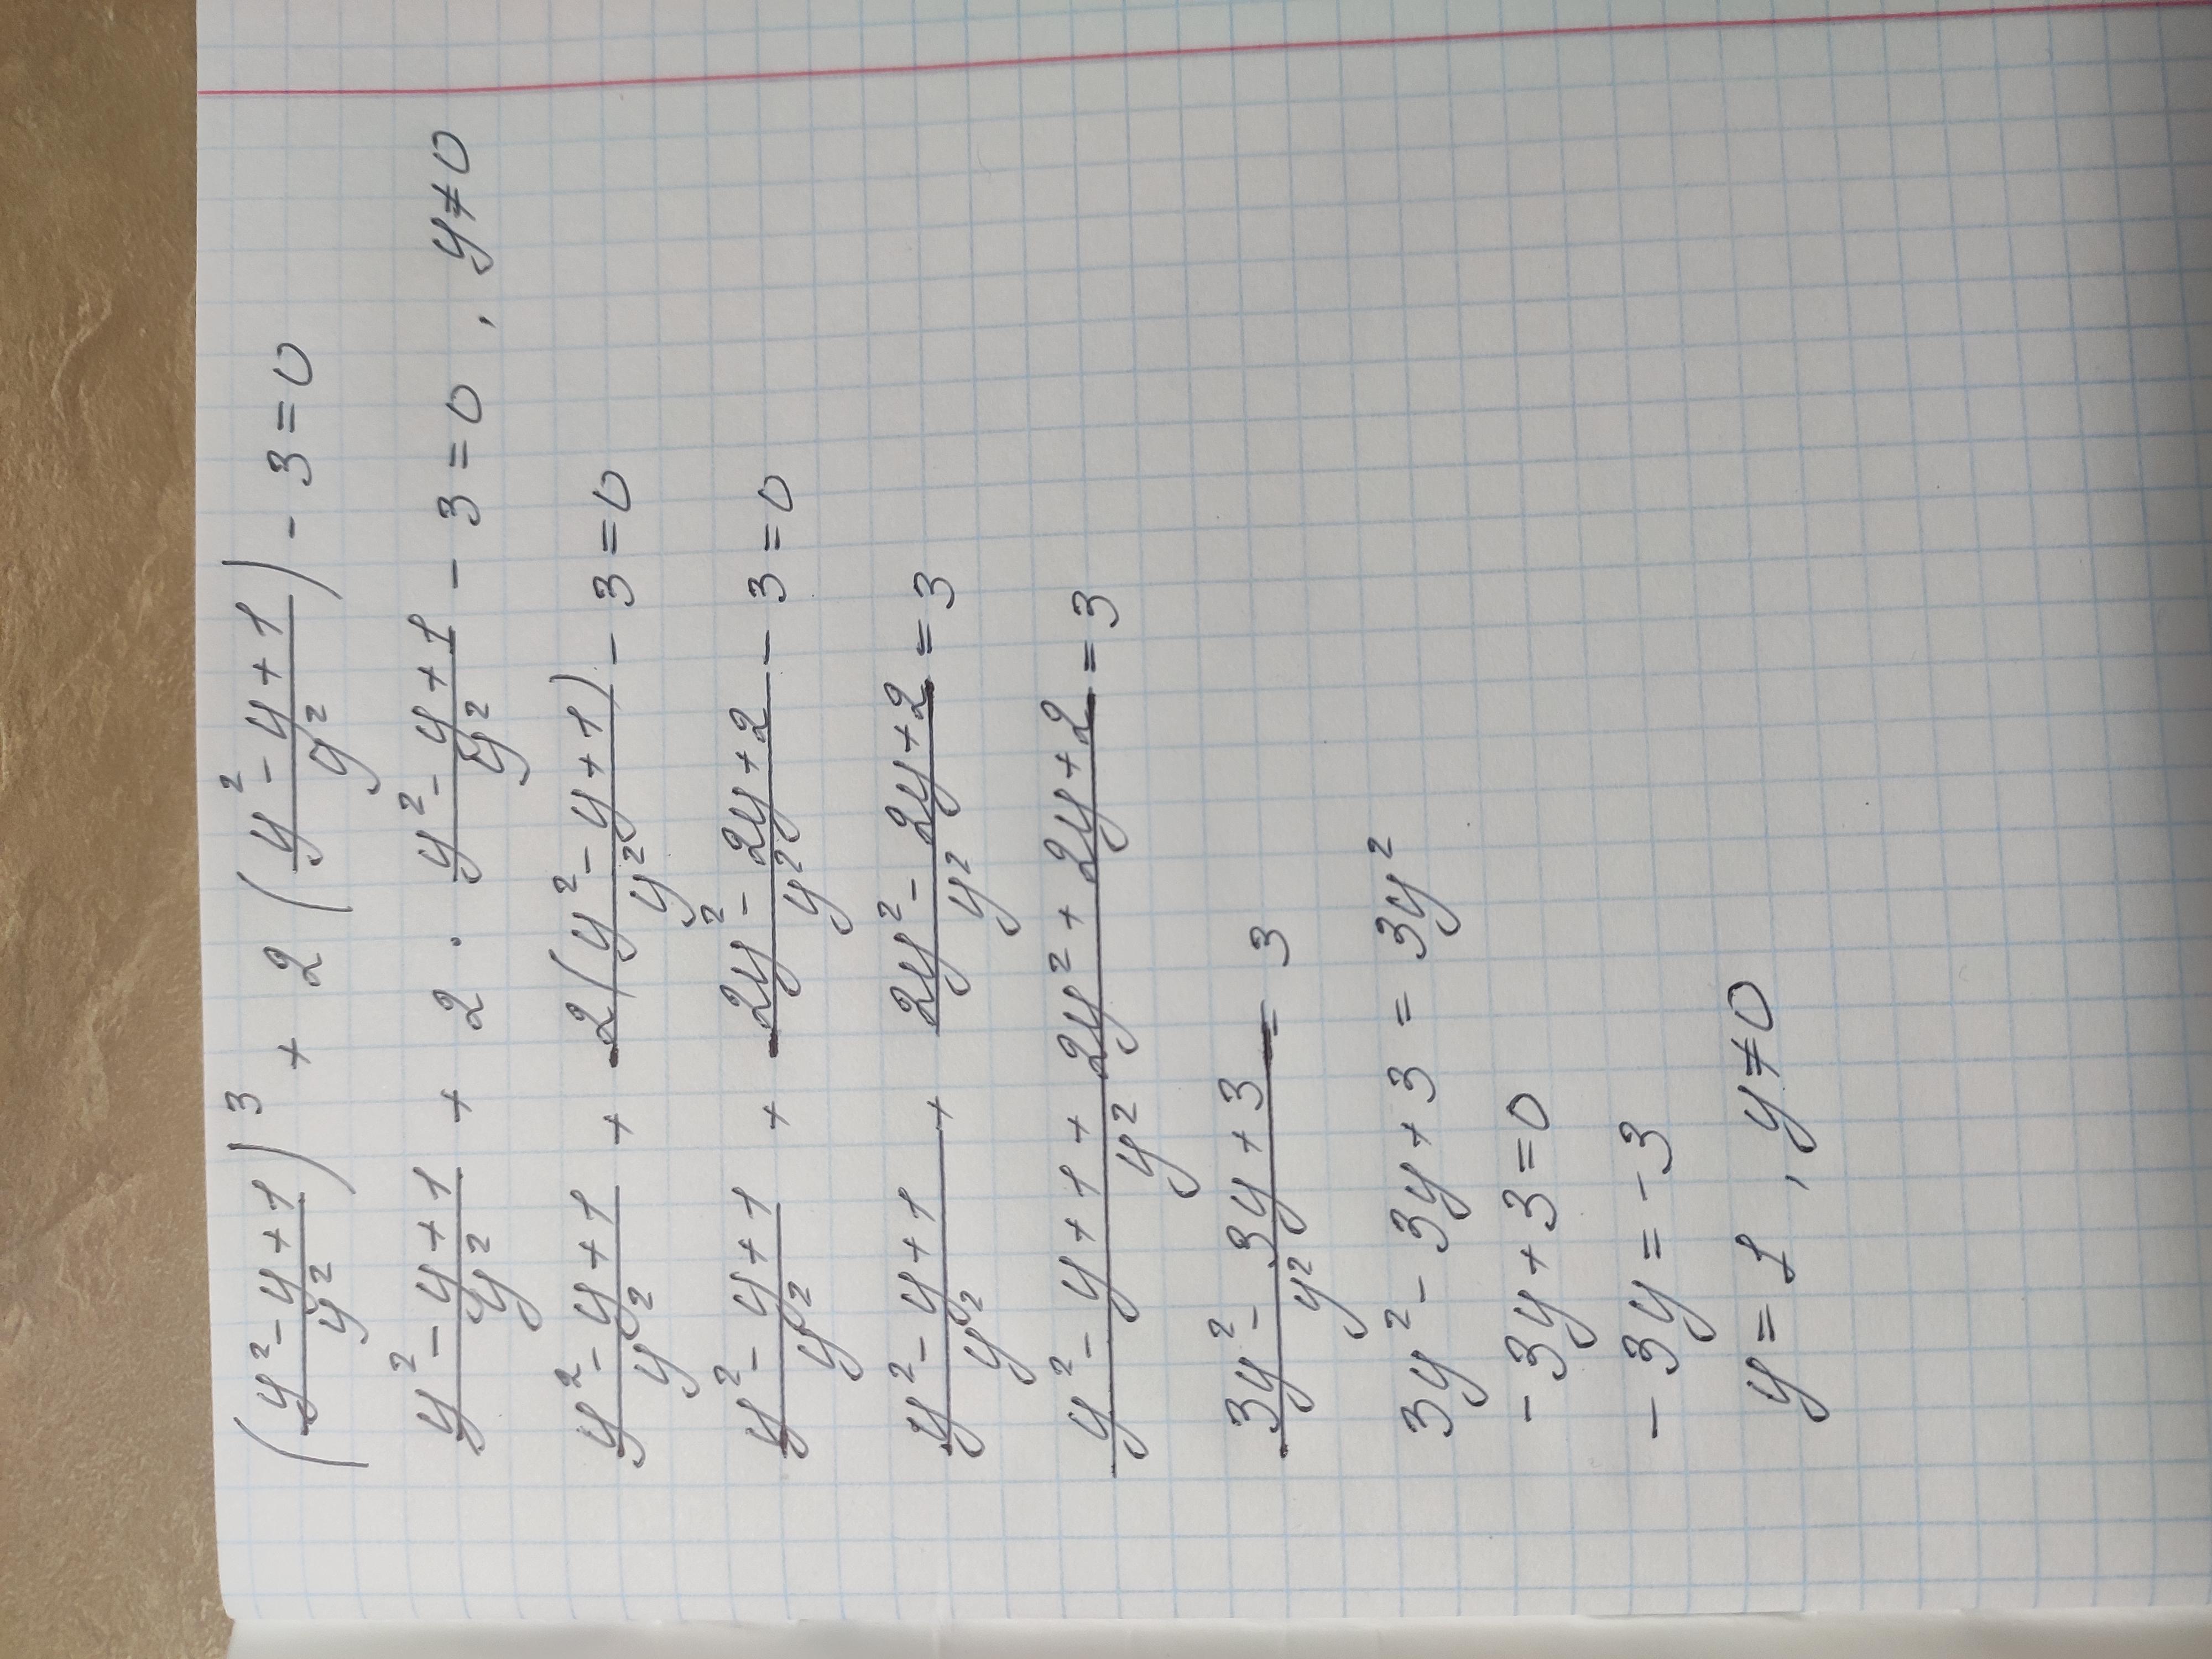 ((y² - y + 1)/y²)³ + 2((y² - y + 1)/y²) - 3 = 0
(y² - y + 1)/y² + 2 · (y² - y + 1)/y² - 3 = 0 , y ≠ 0
(y² - y + 1)/y² + 2(y² - y + 1)/y² - 3 = 0
(y² - y + 1)/y² + (2y² - 2y + 2)/y² - 3 = 0
(y² - y + 1)/y² + (2y² - 2y + 2)/y² = 3
(y² - y + 1 + 2y² + 2y + 2)/y² = 3
(3y² - 3y + 3)/y² = 3
3y² - 3y + 3 = 3y²
- 3y + 3 = 0
- 3y = - 3
y = 1 , y ≠ 0